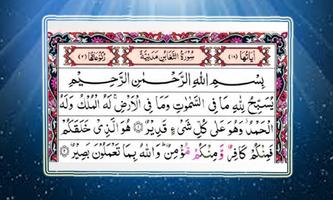 اٰيَاتُهَا (١٨) سُوْرَةُ التَّغَابُنِ مَدَنِيَّةٌ رُكُوْعَاتُهَا (٢)
بِسْمِ اللّٰهِ الرَّحْمٰنِ الرَّحِيْمِ
يُسَبِّحُ لِلّٰهِ مَا فِى السَّمٰوٰتِ وَمَا فِى الْاَرْضِ ۚ لَهُ الْمُلْكُ وَلَهُ
الْحَمْدُ ؗ وَهُوَ عَلٰى كُلِّ شَىْءٍ قَدِيْرٌ ۝١ هُوَ الَّذِىْ خَلَقَكُمْ
فَمِنْكُمْ كَافِرٌ وَّمِنْكُمْ مُّؤْمِنٌ ؕ وَاللّٰهُ بِمَا تَعْمَلُوْنَ بَصِيْرٌ ۝٢